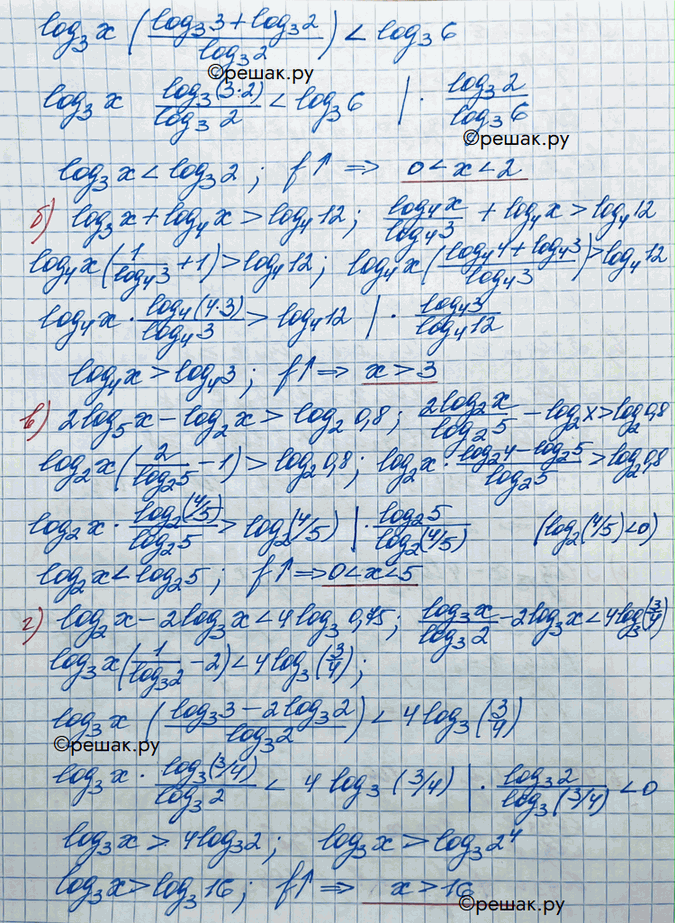 log₃x (log₃3 + log₃2 / log₃2) < log₃6
©решак.ру
log₃x log₃(3·2)/log₃2 < log₃6 | · log₃2/log₃6
©решак.ру
log₃x < log₃2; f↑ ⇒ 0<x<2
б) log₃x + log₄x > log₄12; log₄x/log₄3 + log₄x > log₄12
log₄x(1/log₄3 + 1) > log₄12; log₄x(log₄4 + log₄3 / log₄3) > log₄12
log₄x · log₄(4·3)/log₄3 > log₄12 | · log₄3/log₄12
log₄x > log₄3; f↑ ⇒ x > 3
в) 2log₅x − log₂x > log₂0,8; 2log₂x/log₂5 − log₂x > log₂0,8
log₂x(2/log₂5 − 1) > log₂0,8; log₂x · log₂4 − log₂5 / log₂5 > log₂0,8
log₂x · log₂(4/5)/log₂5 > log₂(4/5) | · log₂5/log₂(4/5) (log₂(4/5) < 0)
log₂x < log₂5; f↑ ⇒ 0<x<5
г) log₂x − 2log₃x < 4log₃0,75; log₃x/log₃2 − 2log₃x < 4log₃(3/4)
log₃x(1/log₃2 − 2) < 4log₃(3/4);
log₃x (log₃3 − 2log₃2 / log₃2) < 4log₃(3/4)
©решак.ру
log₃x · log₃(3/4)/log₃2 < 4log₃(3/4) | · log₃2/log₃(3/4) < 0
log₃x > 4log₃2; log₃x > log₃2⁴
log₃x > log₃16; f↑ ⇒ x > 16
©решак.ру